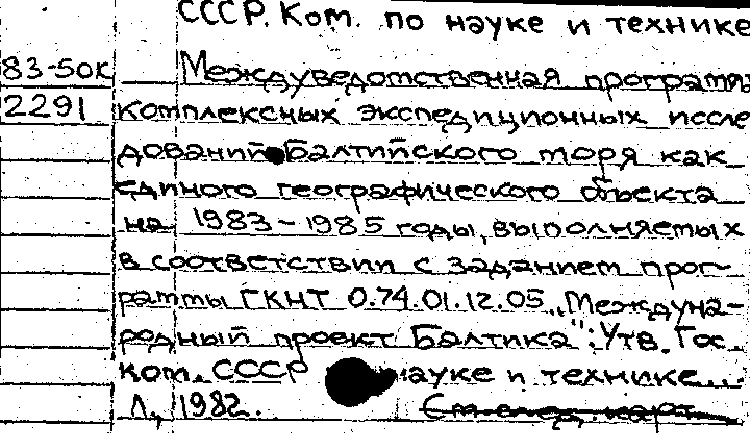 СССР. Ком. по науке и технике
83-50к Междуведомственная программы
2291 комплексных экспедиционных иссле
дований Балтийского моря как
единого географического объекта
на 1983-1985 годы, выполняемых
в соответствии с заданием прог-
раммы ГКНТ 0.74.01.12.05 „Междуна-
родный проект Балтика": Утв. Гос.
ком. СССР науке и технике...
Л., 1982. См. след. карт.